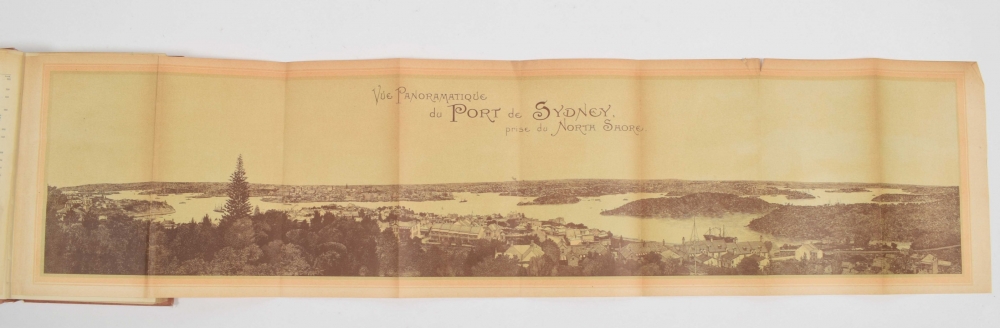 Vue Panoramatique
du Port de Sydney.
prise du North Shore